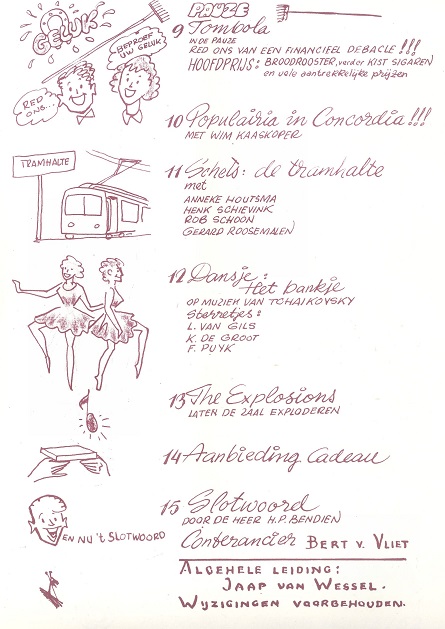 PAUZE
GELUK
BEPROEF
UW GELUK
RED
ONS...
9 Tombola
IN DE PAUZE
RED ONS VAN EEN FINANCIEEL DEBACLE!!!
HOOFDPRIJS: BROODROOSTER, verder KIST SIGAREN
en vele aantrekkelijke prijzen
10 Populairia in Concordia!!!
MET WIM KAASKOPER
TRAMHALTE
11 Schets: de tramhalte
met
ANNEKE HOUTSMA
HENK SCHIEVINK
ROB SCHOON
GERARD ROOSEMALEN
12 Dansje:
Het bankje
OP MUZIEK VAN TCHAIKOVSKY
Sterretjes:
L. VAN GILS
K. DE GROOT
F. PUYK
13 The Explosions
LATEN DE ZAAL EXPLODEREN
14 Aanbieding Cadeau
15 Slotwoord
DOOR DE HEER H.P. BENDIEN
EN NU 'T SLOTWOORD
Conferancier BERT V. VLIET
ALGEHELE LEIDING:
JAAP VAN WESSEL.
WYZIGINGEN VOORBEHOUDEN.